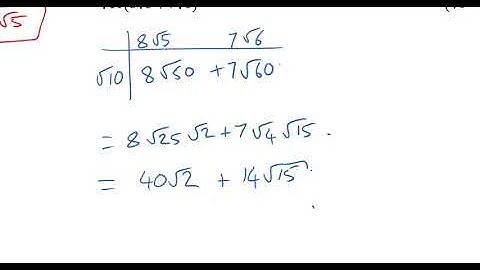 √5
8√5 7√6
√10 8√50 + 7√60
= 8√25 √2 + 7√4 √15
= 40√2 + 14√15